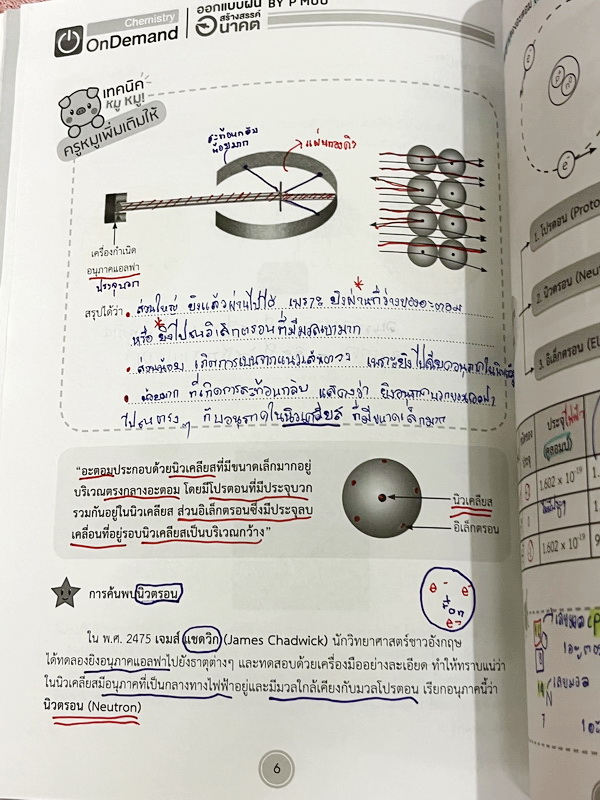 Chemistry
OnDemand
ออกแบบฝัน BY P'MUU
สร้างสรรค์
อนาคต
เทคนิค
หมู หมู!
ครูหมูเพิ่มเติมให้
สะท้อนกลับ
น้อยมาก
แผ่นทองคำ
เครื่องกำเนิด
อนุภาคแอลฟา
ประจุบวก
สรุปได้ว่า • ส่วนใหญ่ ยิงแล้วผ่านไปได้ เพราะ ยิงผ่านที่ว่างของอะตอม
หรือ ยิงไปชนอิเล็กตรอนที่มีมวลเบามาก
• ส่วนน้อย เกิดการเบนจากแนวเส้นตรง เพราะยิงไปเฉียด
• น้อยมาก ที่เกิดการสะท้อนกลับ แสดงว่า ยิงอนุภาค
ไปชนตรงๆ กับอนุภาคในนิวเคลียส ที่มีขนาดเล็กมาก
“อะตอมประกอบด้วยนิวเคลียสที่มีขนาดเล็กมากอยู่
บริเวณตรงกลางอะตอม โดยมีโปรตอนที่มีประจุบวก
รวมกันอยู่ในนิวเคลียส ส่วนอิเล็กตรอนซึ่งมีประจุลบ
เคลื่อนที่อยู่รอบนิวเคลียสเป็นบริเวณกว้าง”
นิวเคลียส
อิเล็กตรอน
การค้นพบนิวตรอน
e- e-
e-
ใน พ.ศ. 2475 เจมส์ แชดวิก (James Chadwick) นักวิทยาศาสตร์ชาวอังกฤษ
ได้ทดลองยิงอนุภาคแอลฟาไปยังธาตุต่างๆ และทดสอบด้วยเครื่องมืออย่างละเอียด ทำให้ทราบแน่ว่า
ในนิวเคลียสมีอนุภาคที่เป็นกลางทางไฟฟ้าอยู่และมีมวลใกล้เคียงกับมวลโปรตอน เรียกอนุภาคนี้ว่า
นิวตรอน (Neutron)
6
e-
e-
1. โปรตอน (Proto
2. นิวตรอน (Neu
3. อิเล็กตรอน (El
ประจุไฟฟ้า
(คูลอมบ์)
1.602 × 10-19
1.602 × 10-19
เลขมวล
N
7